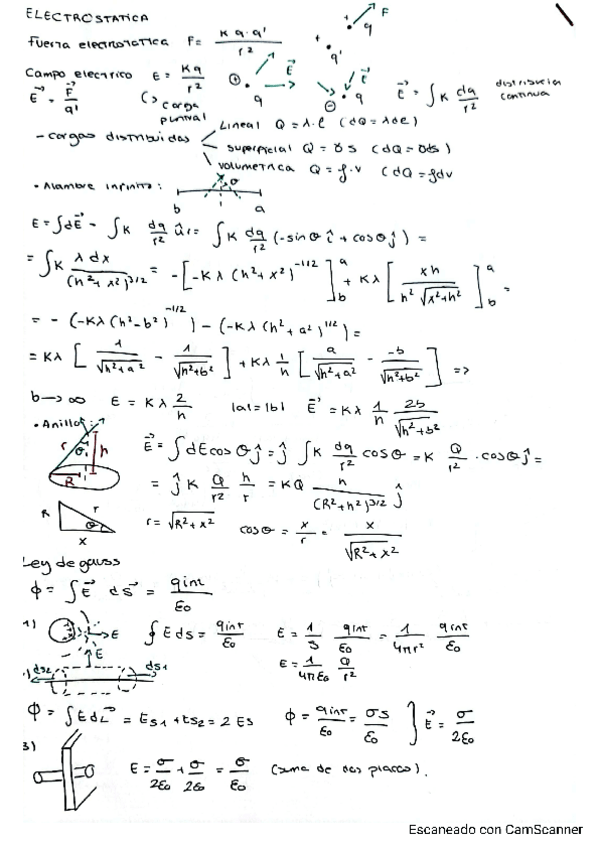 ELECTROSTATICA
Fuerza electrostatica F= K q·q' / r²
F
q
q'
Campo electrico E = Kq / r²
E⃗ = F⃗ / q'
carga puntual
E⃗
q
E⃗
q
E⃗ = ∫K dq / r² distribucion continua
- cargas distribuidas
Lineal Q = λ·l (dQ = λdl)
superficial Q = σs (dQ = σds)
volumetrica Q = ρ·v (dQ = ρdv
· Alambre infinito:
θ
b a
E = ∫dE⃗ = ∫K dq/r² ûr = ∫K dq/r² (-sinθ î + cosθ ĵ) =
= ∫K λ dx / (h² + x²)^3/2 = -[-Kλ (h² + x²)^-1/2]_b^a + Kλ [xh / h²√(x²+h²)]_b^a =
= - (-Kλ (h²-b²)^-1/2) - (-Kλ (h² + a²)^1/2) =
= Kλ [1/√(h²+a²) - 1/√(h²+b²)] + Kλ 1/h [a/√(h²+a²) - -b/√(h²+b²)] =>
b → ∞ E = Kλ 2/h |a| = |b| E⃗ = Kλ 1/h 2b/√(h²+b²)
· Anillo:
r θ h
R
E⃗ = ∫dE cosθ ĵ = ĵ ∫K dq/r² cosθ = K Q/r² · cosθ ĵ =
= ĵ K Q/r² h/r = KQ h/(R²+h²)^3/2 ĵ
R r θ
x
r = √(R² + x²) cosθ = x/r = x/√(R² + x²)
Ley de gauss
Φ = ∫E⃗ ds⃗ = qint/ε0
1)
E
∮E ds = qint/ε0 E = 1/S qint/ε0 = 1/4πr² qint/ε0
E = 1/4πε0 Q/r²
E
ds2 ds1
Φ = ∫E ds⃗ = Es1 + Es2 = 2Es Φ = qint/ε0 = σs/ε0 } E⃗ = σ/2ε0
3)
E = σ/2ε0 + σ/2ε0 = σ/ε0 (suma de dos placas).
Escaneado con CamScanner